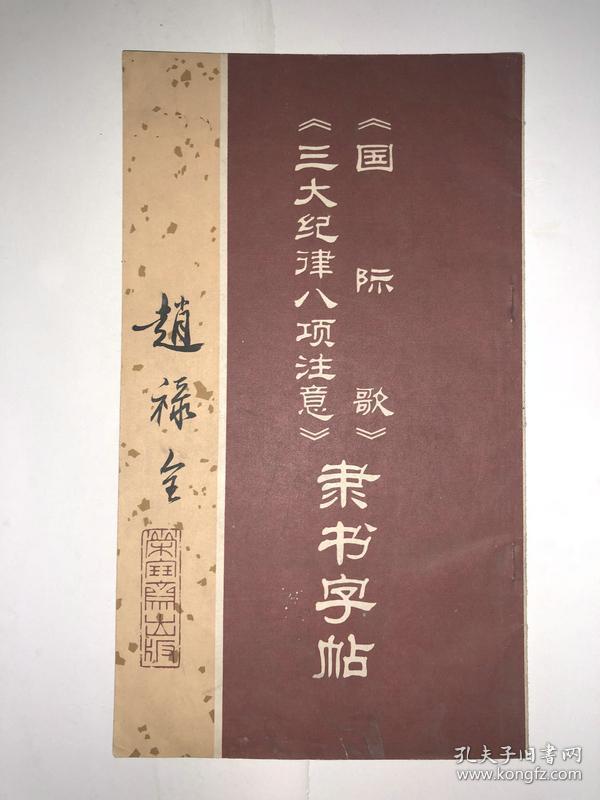 《国际歌》
《三大纪律八项注意》
隶书字帖
趙禄全
荣宝斋出版
孔夫子旧书网
www.kongfz.com